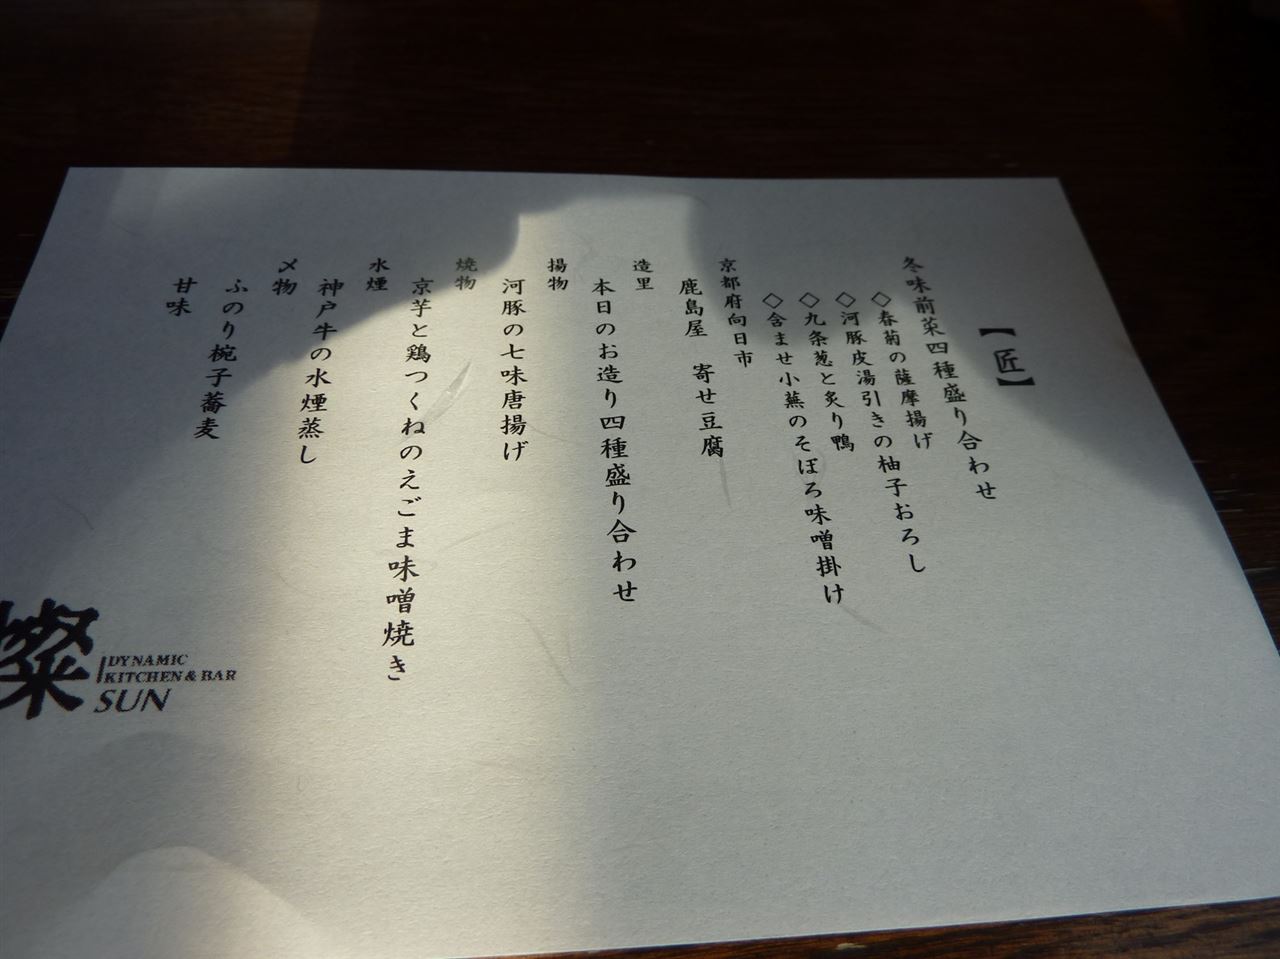 【匠】
冬味前菜四種盛り合わせ
◇春菊の薩摩揚げ
◇河豚皮湯引きの柚子おろし
◇九条葱と炙り鴨
◇含ませ小蕪のそぼろ味噌掛け
京都府向日市
鹿島屋 寄せ豆腐
造里
本日のお造り四種盛り合わせ
揚物
河豚の七味唐揚げ
焼物
京芋と鶏つくねのえごま味噌焼き
水煙
神戸牛の水煙蒸し
〆物
ふのり椀子蕎麦
甘味
燦
DYNAMIC
KITCHEN & BAR
SUN